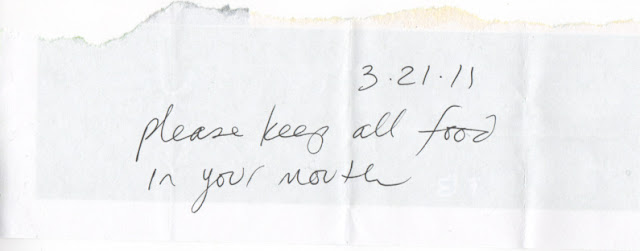 3.21.11
please keep all food
in your mouth